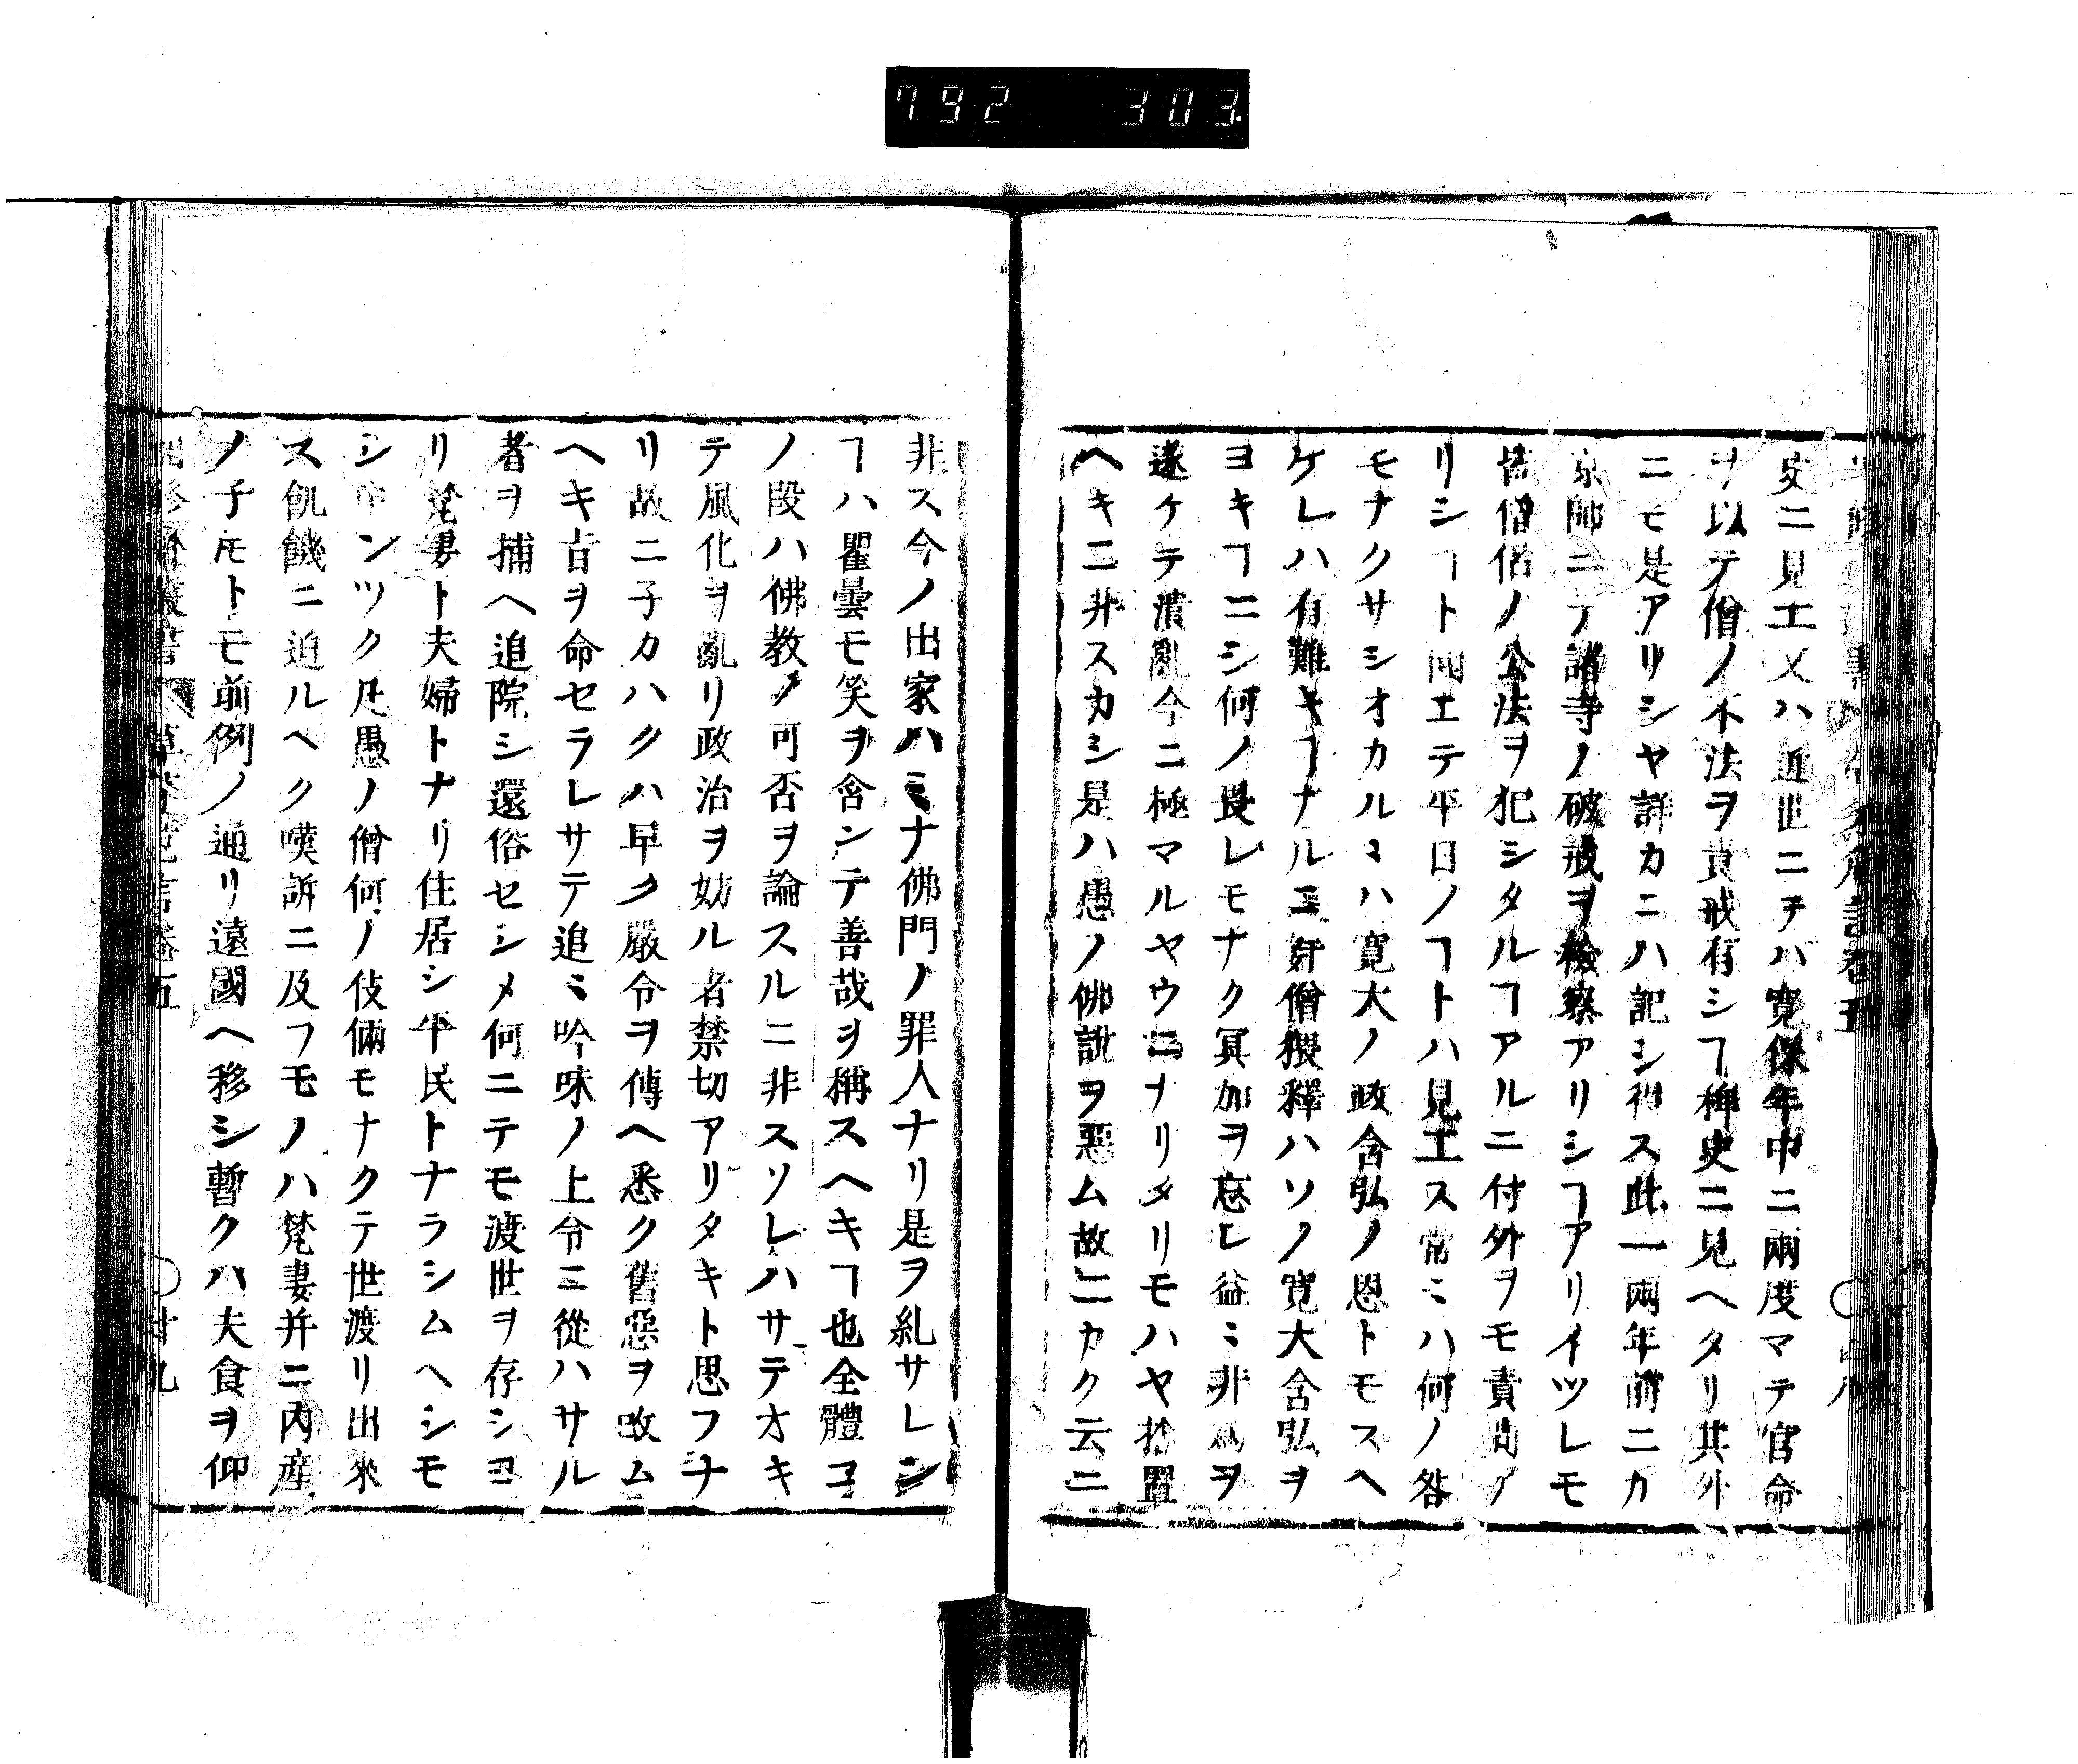 792 303
史ニ見エ又ハ近世ニテハ寛保年中ニ兩度マテ官命
ヲ以テ僧ノ不法ヲ責戒有シヿ稗史ニ見ヘタリ其外
ニモ是アリシヤ詳カニハ記シ得ス此一兩年前ニカ
京師ニテ諸寺ノ破戒ヲ檢察アリシヿアリイツレモ
皆僧侶ノ公法ヲ犯シタルヿアルニ付外ヲモ責問ア
リシヿト聞エテ平日ノヿトハ見エス常ミハ何ノ咎
モナクサシオカルミハ寛大ノ政含弘ノ恩トモスヘ
ケレハ有難キヿナルニ奸僧猥釋ハソノ寛大含弘ヲ
ヨキヿニシ何ノ畏レモナク冥加ヲ忘レ益ミ非爲ヲ
遂ケテ潰亂今ニ極マルヤウニナリタリモハヤ捨置
ヘキニ非スカシ是ハ愚ノ佛說ヲ惡ム故ニカク云ニ
非ス今ノ出家ハミナ佛門ノ罪人ナリ是ヲ糺サレシ
ヿハ瞿曇モ笑ヲ含ンテ善哉ヲ稱スヘキヿ也全體コ
ノ段ハ佛教ノ可否ヲ論スルニ非スソレハサテオキ
テ風化ヲ亂リ政治ヲ妨ル者禁切アリタキト思フナ
リ故ニ子カハクハ早ク嚴令ヲ傳ヘ悉ク舊惡ヲ改ム
ヘキ旨ヲ命セラレサテ追ミ吟味ノ上令ニ從ハサル
者ヲ捕ヘ追院シ還俗セシメ何ニテモ渡世ヲ存シヨ
リ梵妻ト夫婦トナリ住居シ平民トナラシムヘシモ
シ中ンツク凡愚ノ僧何ノ伎倆モナクテ世渡リ出來
ス飢饑ニ迫ルヘク嘆訴ニ及フモノハ梵妻并ニ內産
ノ子モトモ前例ノ通リ遠國ヘ移シ暫クハ夫食ヲ仰
草茅危言卷五